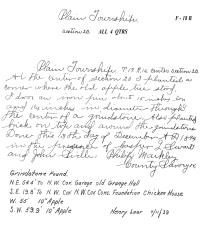 Plain Township
F-18 B
Section 20 ALL 4 QTRS
Plain Township T.17 R.16 center section 20
At the center of section 20 I planted a
corner where the old apple tree stood.
I drove an iron pin about 10 inches long
and 1¼ inches in diameter through
the center of a grindstone. Also planted
brick on top and around the grindstone
Done this 18th day of December A.D. 1874
in the presence of Casper L. Ewart
and John Firstone. Philip Markley
County Surveyor
Grindstone Found.
N.E. 54.4' to N.W. Cor. Garage old Grange Hall
S.E. 19.8' to N.W. Cor. Conc. Foundation Chicken House
W. 55' 10" Apple
S.W. 59.9' 10" Apple Henry Lear 9/11/39